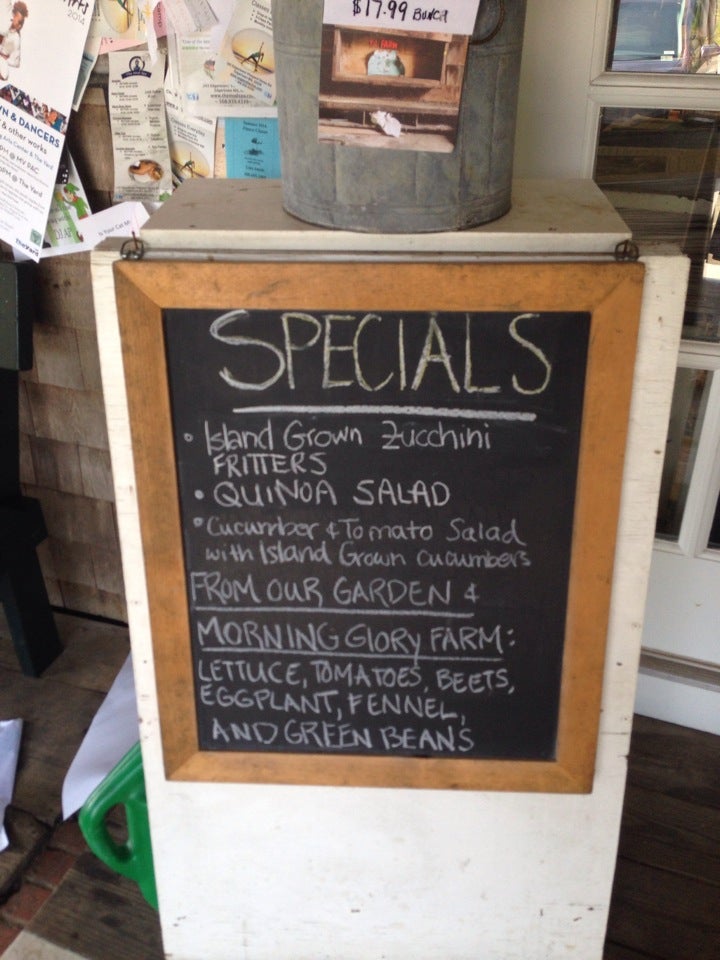 $17.99 BUNCH
2014
N & DANCERS
& other works
The Yard
SPECIALS
• Island Grown Zucchini
FRITTERS
• QUINOA SALAD
• Cucumber & Tomato Salad
with Island Grown cucumbers
FROM OUR GARDEN &
MORNING GLORY FARM:
LETTUCE, TOMATOES, BEETS,
EGGPLANT, FENNEL,
AND GREEN BEANS